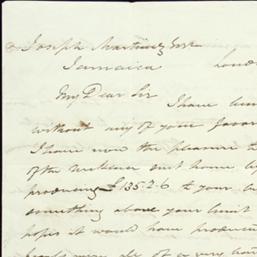 Joseph Martinez Esqr
Jamaica
My Dear Sir
I have been
without any of your favor
I have now the pleasure t
of the sent home by
producing £135.2.6 to your
something above your limit
hope it would have produc
were all of a very